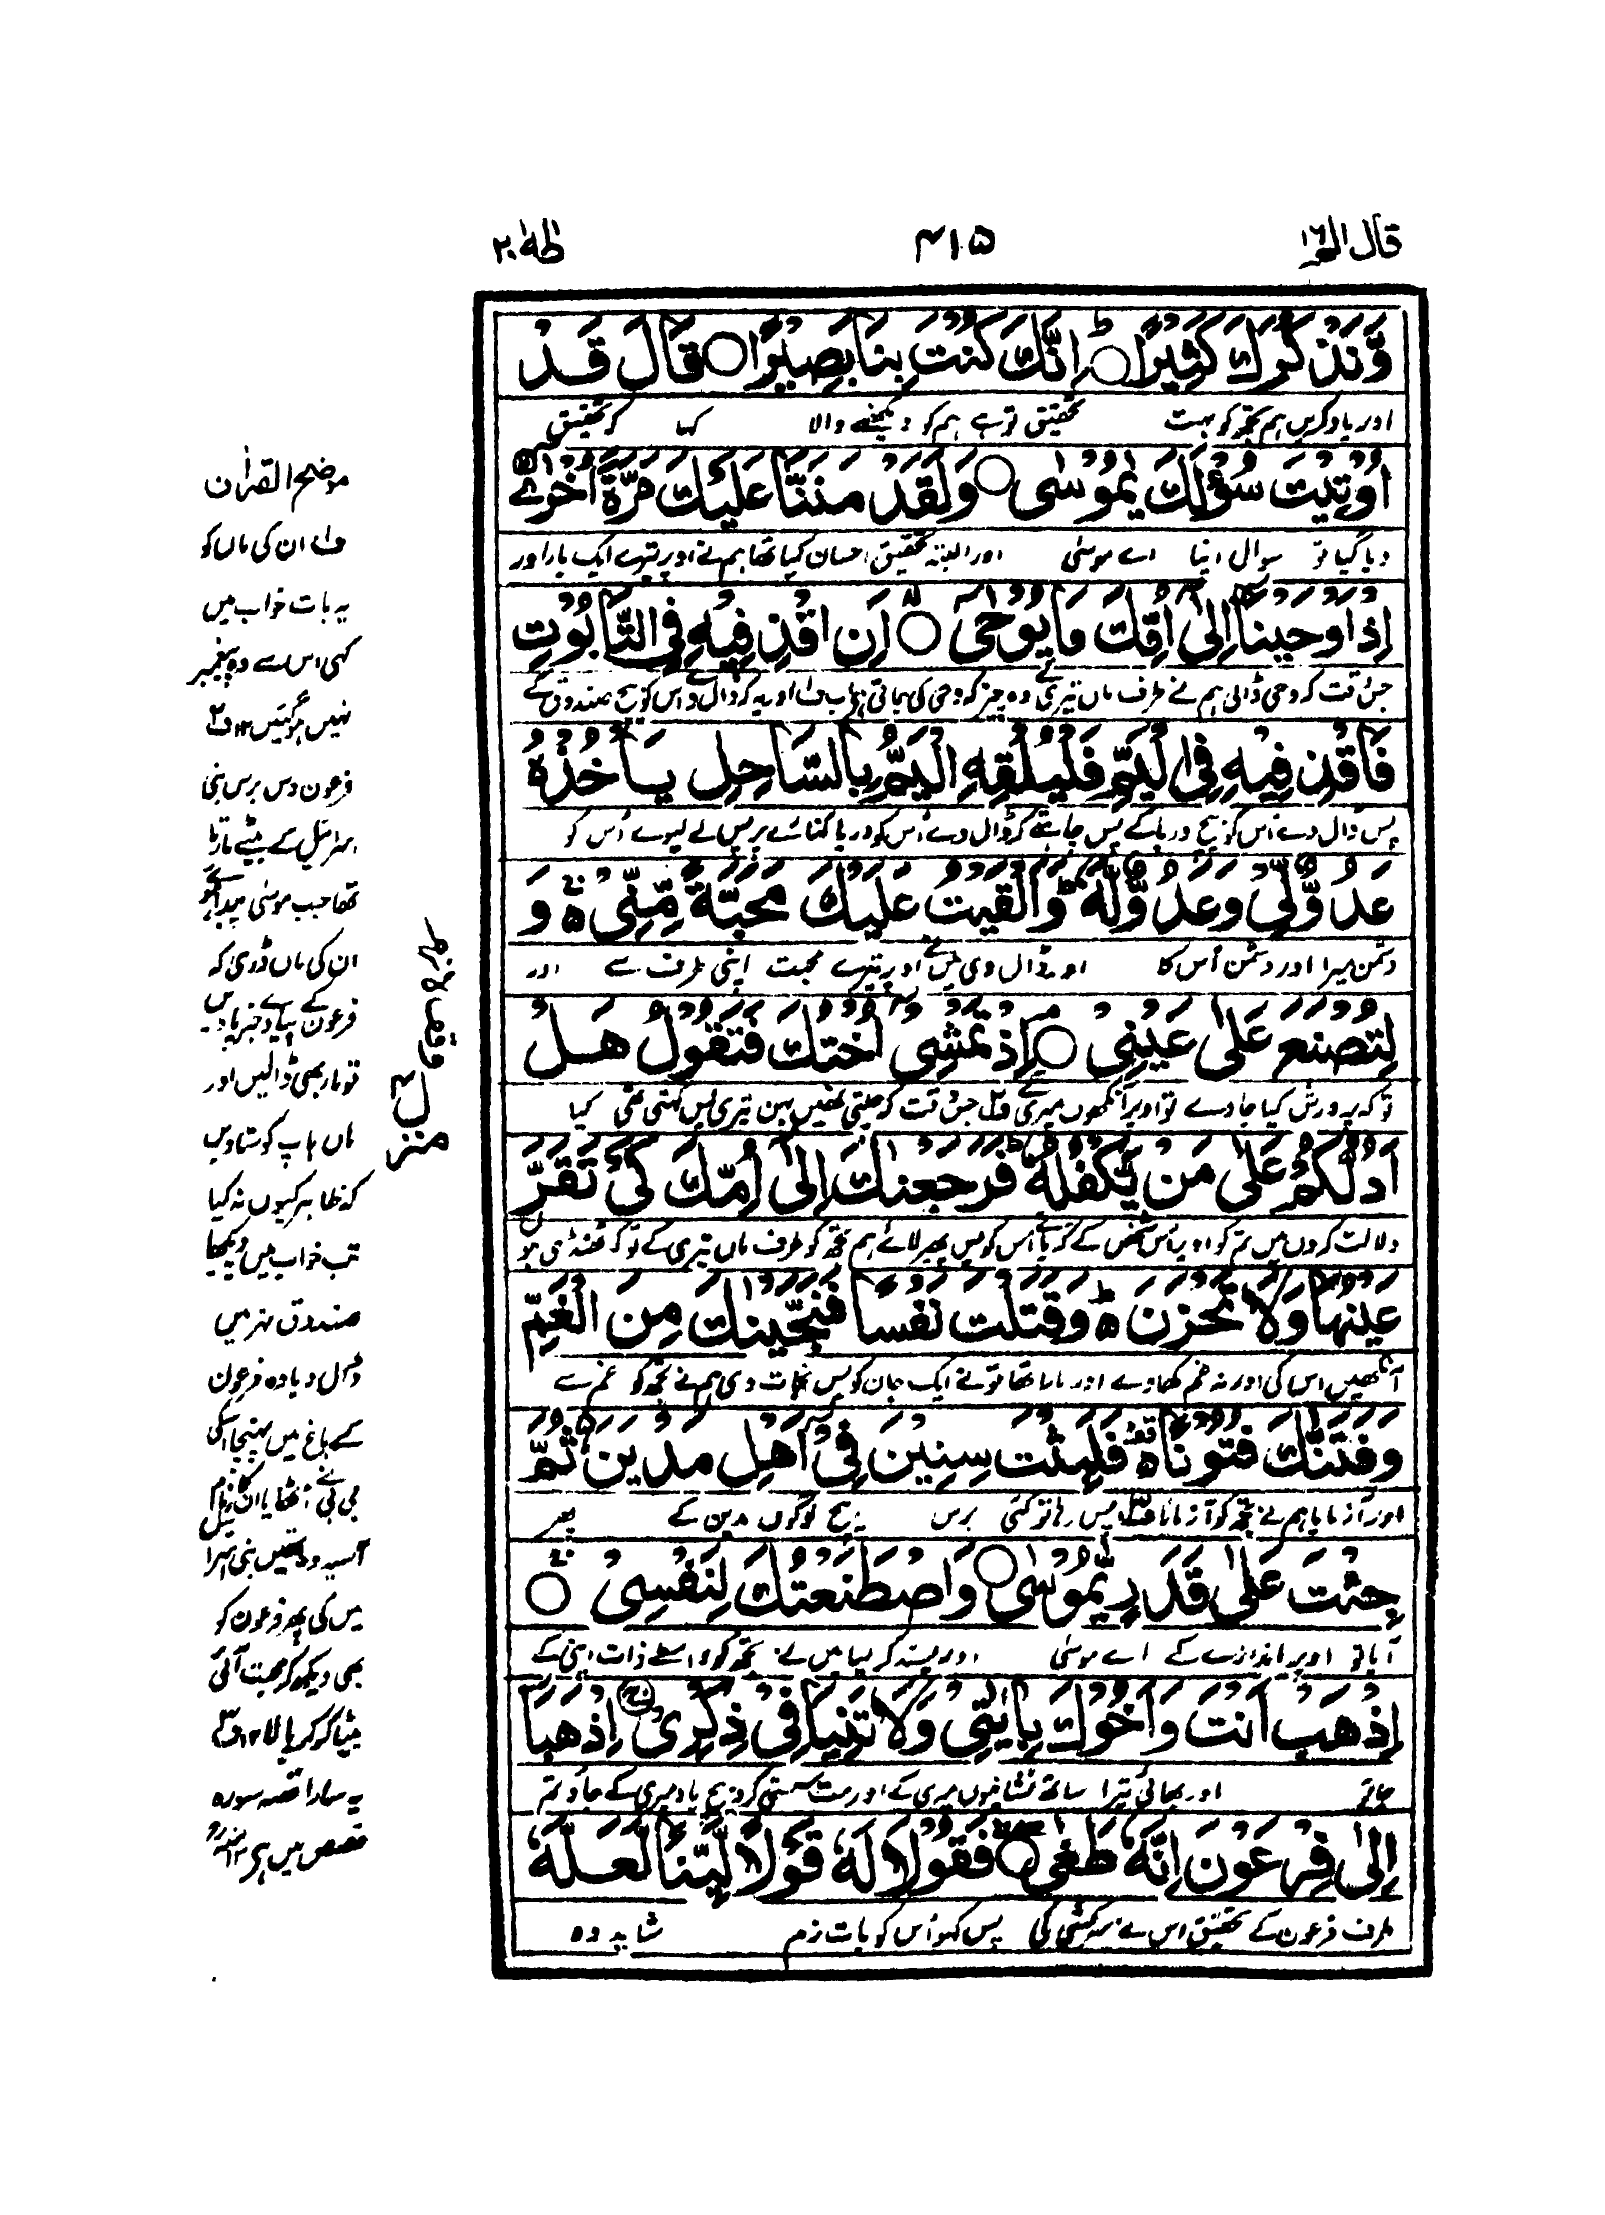 قال الم ١٦
٤١٥
طٰهٰ ٢٠
وَّنَذْكُرَكَ كَثِيْرًا ۝ اِنَّكَ كُنْتَ بِنَا بَصِيْرًا ۝ قَالَ قَدْ
اور یاد کریں ہم تجھ کو بہت تحقیق تو ہے ہم کو دیکھنے والا کہا کہ تحقیق
اُوْتِيْتَ سُؤْلَكَ يٰمُوْسٰى ۝ وَلَقَدْ مَنَنَّا عَلَيْكَ مَرَّةً اُخْرٰى
دیا گیا تو سوال اپنا اے موسیٰ اور البتہ تحقیق احسان کیا تھا ہم نے اوپر تیرے ایک بار اور
اِذْ اَوْحَيْنَا اِلٰى اُمِّكَ مَا يُوْحٰى ۝ اَنِ اقْذِفِيْهِ فِى التَّابُوْتِ
جس وقت کہ وحی ڈالی ہم نے طرف ماں تیری کے وہ چیز کہ وحی کی جاتی ہے اب ف۱ اور یہ کہ ڈال دے اس کو بیچ صندوق کے
فَاقْذِفِيْهِ فِى الْيَمِّ فَلْيُلْقِهِ الْيَمُّ بِالسَّاحِلِ يَاْخُذْهُ
پس ڈال دے اُس کو بیچ دریا کے پس چاہئے کہ ڈال دے اُس کو دریا کنارے پر پس لے لیوے اُس کو
عَدُوٌّ لِّى وَعَدُوٌّ لَّهٗ ؕ وَاَلْقَيْتُ عَلَيْكَ مَحَبَّةً مِّنِّى ە وَ
دشمن میرا اور دشمن اُس کا اور ڈال دی میں نے اوپر تیرے محبت اپنی طرف سے اور
لِتُصْنَعَ عَلٰى عَيْنِىْ ۝ اِذْ تَمْشِىْ اُخْتُكَ فَتَقُوْلُ هَلْ
تو کہ پرورش کیا جاوے تو اوپر آنکھوں میری کے ف۲ جس وقت کہ چلتی تھیں بہن تیری پس کہتی تھی کیا
اَدُلُّكُمْ عَلٰى مَنْ يَّكْفُلُهٗ ؕ فَرَجَعْنٰكَ اِلٰى اُمِّكَ كَىْ تَقَرَّ
دلالت کروں میں تم کو اوپر اُس شخص کے کہ پالے اُس کو پس پھیر لائے ہم تجھ کو طرف ماں تیری کے تو کہ ٹھنڈی ہوں
عَيْنُهَا وَلَا تَحْزَنَ ە ؕ وَقَتَلْتَ نَفْسًا فَنَجَّيْنٰكَ مِنَ الْغَمِّ
آنکھیں اس کی اور نہ غم کھاوے اور مارا تھا تو نے ایک جان کو پس نجات دی ہم نے تجھ کو غم سے
وَفَتَنّٰكَ فُتُوْنًا ە فَلَبِثْتَ سِنِيْنَ فِىْ اَهْلِ مَدْيَنَ ثُمَّ
اور آزمایا ہم نے تجھ کو آزمانا پس رہا تو کئی برس بیچ لوگوں مدین کے پھر
جِئْتَ عَلٰى قَدَرٍ يّٰمُوْسٰى ۝ وَاصْطَنَعْتُكَ لِنَفْسِىْ ۝
آیا تو اوپر اندازے کے اے موسیٰ اور پسند کر لیا میں نے تجھ کو واسطے ذات اپنی کے
اِذْهَبْ اَنْتَ وَاَخُوْكَ بِاٰيٰتِىْ وَلَا تَنِيَا فِىْ ذِكْرِىْ اِذْهَبَا
جا تو اور بھائی تیرا ساتھ نشانیوں میری کے اور مت سستی کرو بیچ یاد میری کے جاؤ تم
اِلٰى فِرْعَوْنَ اِنَّهٗ طَغٰى ۝ فَقُوْلَا لَهٗ قَوْلًا لَّيِّنًا لَّعَلَّهٗ
طرف فرعون کے تحقیق اس نے سرکشی کی پس کہو اُس کو بات نرم شاید وہ
موضح القرآن
ف۱ ان کی ماں کو
یہ بات خواب میں
کہی اس سے وہ پیغمبر
نہیں ہو گئیں ۱۲ ف۲
فرعون دس برس بنی
اسرائیل کے بیٹے مارتا
تھا جب موسیٰ پیدا ہوئے
ان کی ماں ڈری کہ
فرعون کے پیادے خبر پاویں
تو مار بھی ڈالیں اور
ماں باپ کو ستاویں
کہ ظاہر کیوں نہ کیا
تب خواب میں دیکھا
صندوق نہر میں
ڈال دیا وہ فرعون
کے باغ میں پہنچا اسکی
بی بی نے اٹھایا ان کا نام
آسیہ وہ تھیں بنی اسرا
میں کی پھر فرعون کو
بھی دیکھ کر محبت آئی
بیٹا کر کر پالا ۱۲ ف۳
یہ سارا قصہ سورہ
قصص میں ہے
وقف لازم
منزل ٤